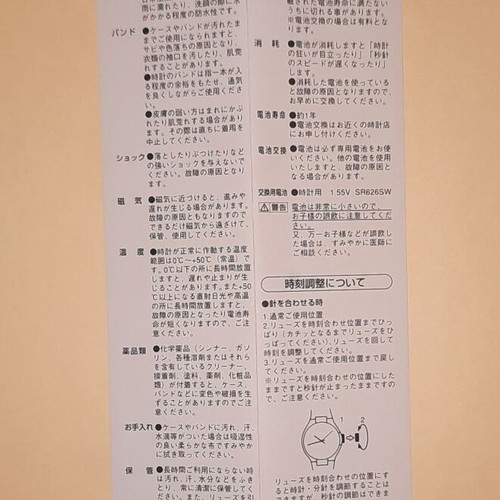 雨に濡れたり、洗顔の際に水
がかかる程度の防水性です。
バンド ●ケースやバンドが汚れたま
までご使用になられますと、
サビや色落ちの原因となり、
衣類の袖口を汚したり、肌荒
れすることがあります。
●時計のバンドは指一本が入
る程度の余裕をもたせ、通気
を良くしながらご使用くださ
い。
●皮膚の弱い方はまれにかぶ
れたり肌荒れする場合があり
ます。その際は直ちに着用を
中止してください。
ショック ●落としたりぶつけたりなど
の強いショックを与えないで
ください。故障の原因となり
ます。
磁気 ●磁気に近づけると、進みや
遅れが生じる場合があります。
故障の原因ともなりますので
できるだけ磁気から遠ざけて、
保管、使用してください。
温度 ●時計が正常に作動する温度
範囲は0℃〜+50℃(常温)で
す。0℃以下の所に長時間放置
しますと、遅れや止まりが生
じることがあります。また+50
℃以上になる直射日光や高温
の所に長時間放置しますと、
故障の原因となったり電池寿
命が短くなりますので、ご注
意ください。
薬品類 ●化学薬品(シンナー、ガソ
リン、各種溶剤またはそれら
を含有しているクリーナー、
接着剤、塗料、薬剤、化粧品
類)が付着すると、ケース、
バンドなどに変色や破損を生
ずることがありますのでご注
意ください。
お手入れ ●ケースやバンドに汚れ、汗、
水滴等がついた場合は吸湿性
の良い柔らかな布ですみやか
に拭き取ってください。
保管 ●長時間ご利用にならない時
は汚れ、汗、水分などをふき
とり、常に清潔に保管してく
ださい。また、リューズを引
載された電池寿命に満たない
うちに切れる事があります。
※電池交換の場合は有料とな
ります。
消耗 ●電池が消耗しますと「時計
の狂いが目立ったり」「秒針
のスピードが遅くなったり」
します。
●消耗した電池を使っている
と故障の原因となりますので、
お早めに交換してください。
電池寿命 ●約1年
●電池交換はお近くの時計店
にお申し付けください。
電池交換 ●電池は必ず専用電池をお使
いください。他の電池を使用
いたしますと、故障の原因と
なる場合があります。
交換用電池 ●時計用 1.55V SR626SW
⚠警告 電池は非常に小さいので、
お子様の誤飲に注意してくだ
さい。
又、万一お子様などが誤飲し
た場合は、すみやかに医師に
ご相談ください。
時刻調整について
●針を合わせる時
1.通常ご使用位置
2.リューズを時刻合わせ位置までひっ
ぱり(カチッとなるまでリューズをひ
っぱってください)、リューズを回して
時刻を調整してください。
3.リューズを通常ご使用位置まで戻し
てください。
※リューズを時刻合わせの位置にした
ままですと秒針が止まったままですの
で、ご注意ください。
1 2
リューズを時刻合わせの位置にす
ると時針・分針を調節することは